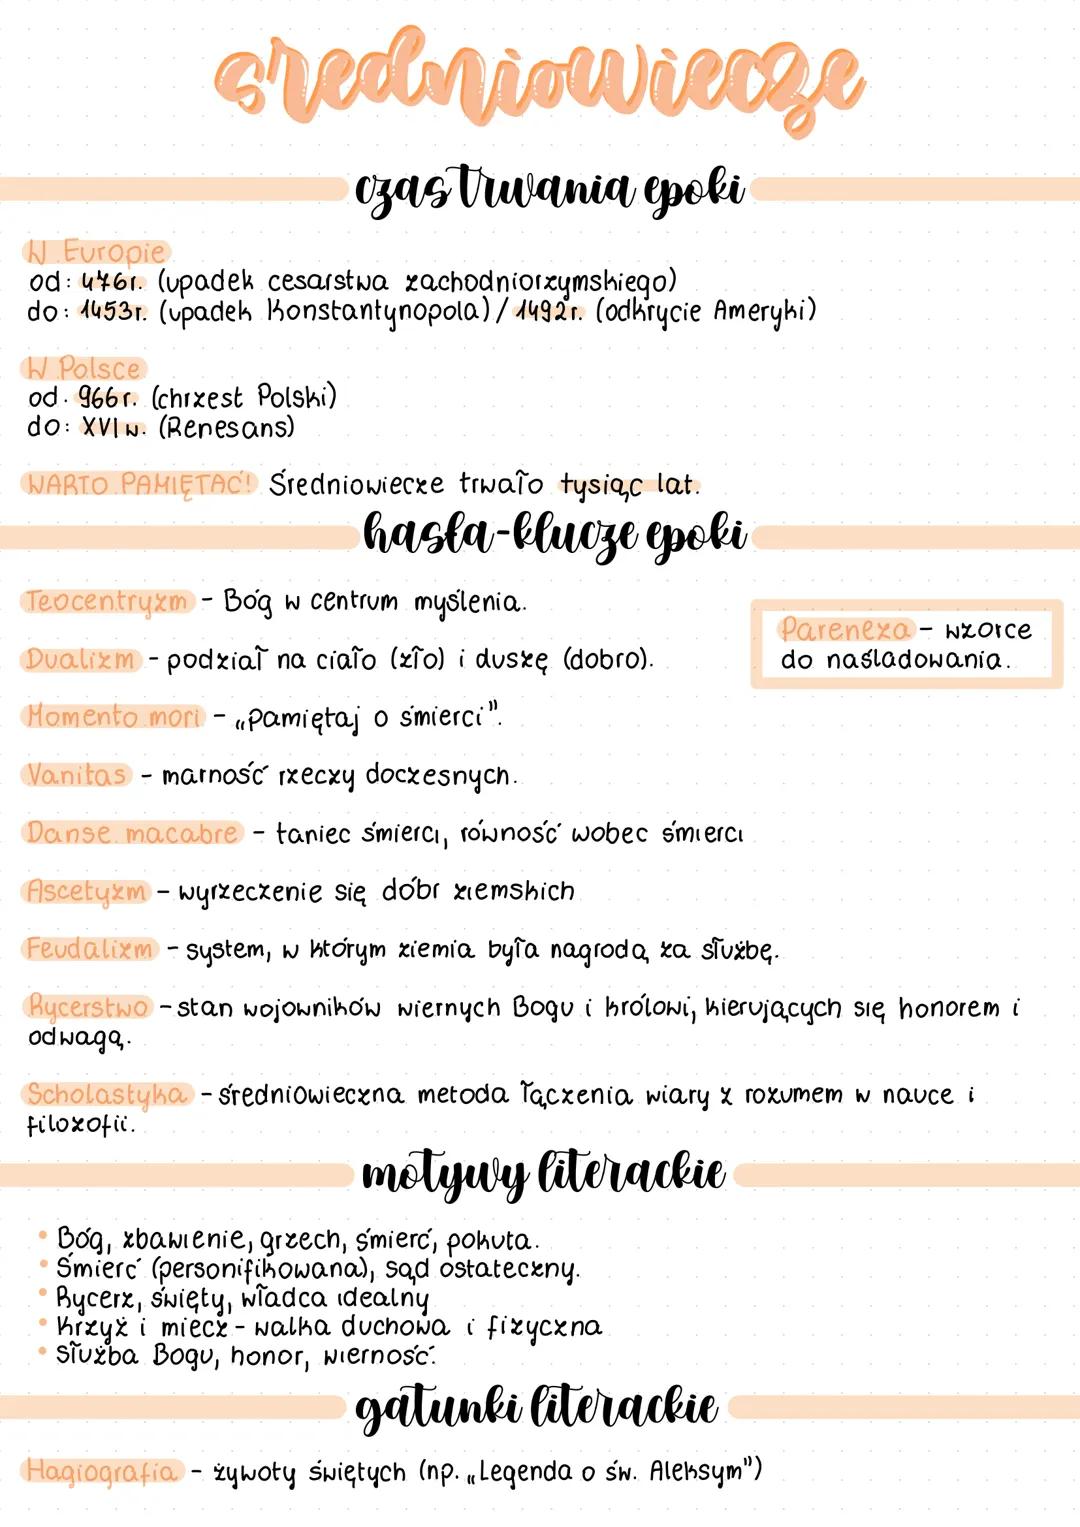 średniowiecze
czas trwania epoki
W Europie
od: 476r. (upadek cesarstwa zachodniorzymskiego)
do: 1453r. (upadek Konstantynopola) / 1492r. (odkrycie Ameryki)
W Polsce
od. 966r. (chrzest Polski)
do: XVI w. (Renesans)
WARTO PAMIĘTAĆ! Średniowiecze trwało tysiąc lat.
hasła-klucze epoki
Teocentryzm - Bóg w centrum myślenia.
Pareneza - wzorce
do naśladowania.
Dualizm - podział na ciało (zło) i duszę (dobro).
Momento mori - „Pamiętaj o śmierci".
Vanitas - marność rzeczy doczesnych.
Danse macabre - taniec śmierci, równość wobec śmierci
Ascetyzm - wyrzeczenie się dóbr ziemskich
Feudalizm - system, w którym ziemia była nagrodą za służbę.
Rycerstwo - stan wojowników wiernych Bogu i królowi, kierujących się honorem i
odwagą.
Scholastyka - średniowieczna metoda łączenia wiary z rozumem w nauce i
filozofii.
motywy literackie
• Bóg, zbawienie, grzech, śmierć, pokuta.
• Śmierć (personifikowana), sąd ostateczny.
• Rycerz, święty, władca idealny
• Krzyż i miecz - walka duchowa i fizyczna
• Służba Bogu, honor, wierność.
gatunki literackie
Hagiografia - żywoty świętych (np. „Legenda o św. Aleksym")